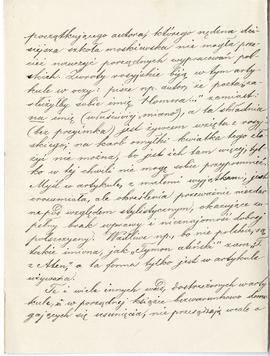 początkującego autora, którego nędzna dzi-
siejsza szkoła moskiewska nie mogła prze-
cież nauczyć porządnych wypracowań pol-
skich. Zwroty rosyjskie biją w tym arty-
kule w oczy: pisze np. autor, że poeta za-
służyłby sobie imię Homera... zamiast:
na imię (właściwiej miano), a ta składnia
(bez przyimka) jest żywcem wzięta z rosyj-
skiego; na karb omyłki kwiatka tego zło-
żyć nie można, bo jest ich tam więcej, tyl-
ko w tej chwili nie mogę sobie przypomnieć.
Myśl w artykule, z małemi wyjątkami, jest
zrozumiała, ale określenia przeważnie niedbałe
pod względem stylistycznym, okazujące zu-
pełny brak wprawy i nieznajomość dobrej
polszczyzny. Wątpliwe np. bo nie polskie są
takie imiona, jak „Tymon ateński" zamiast
z Aten, a ta forma tylko jest w artykule
używana.
Te i wiele innych wad, dostrzeżonych w arty-
kule, a w porządnej książce bezwarunkowo doma-
gających się usunięcia, nie przesądzają wcale o